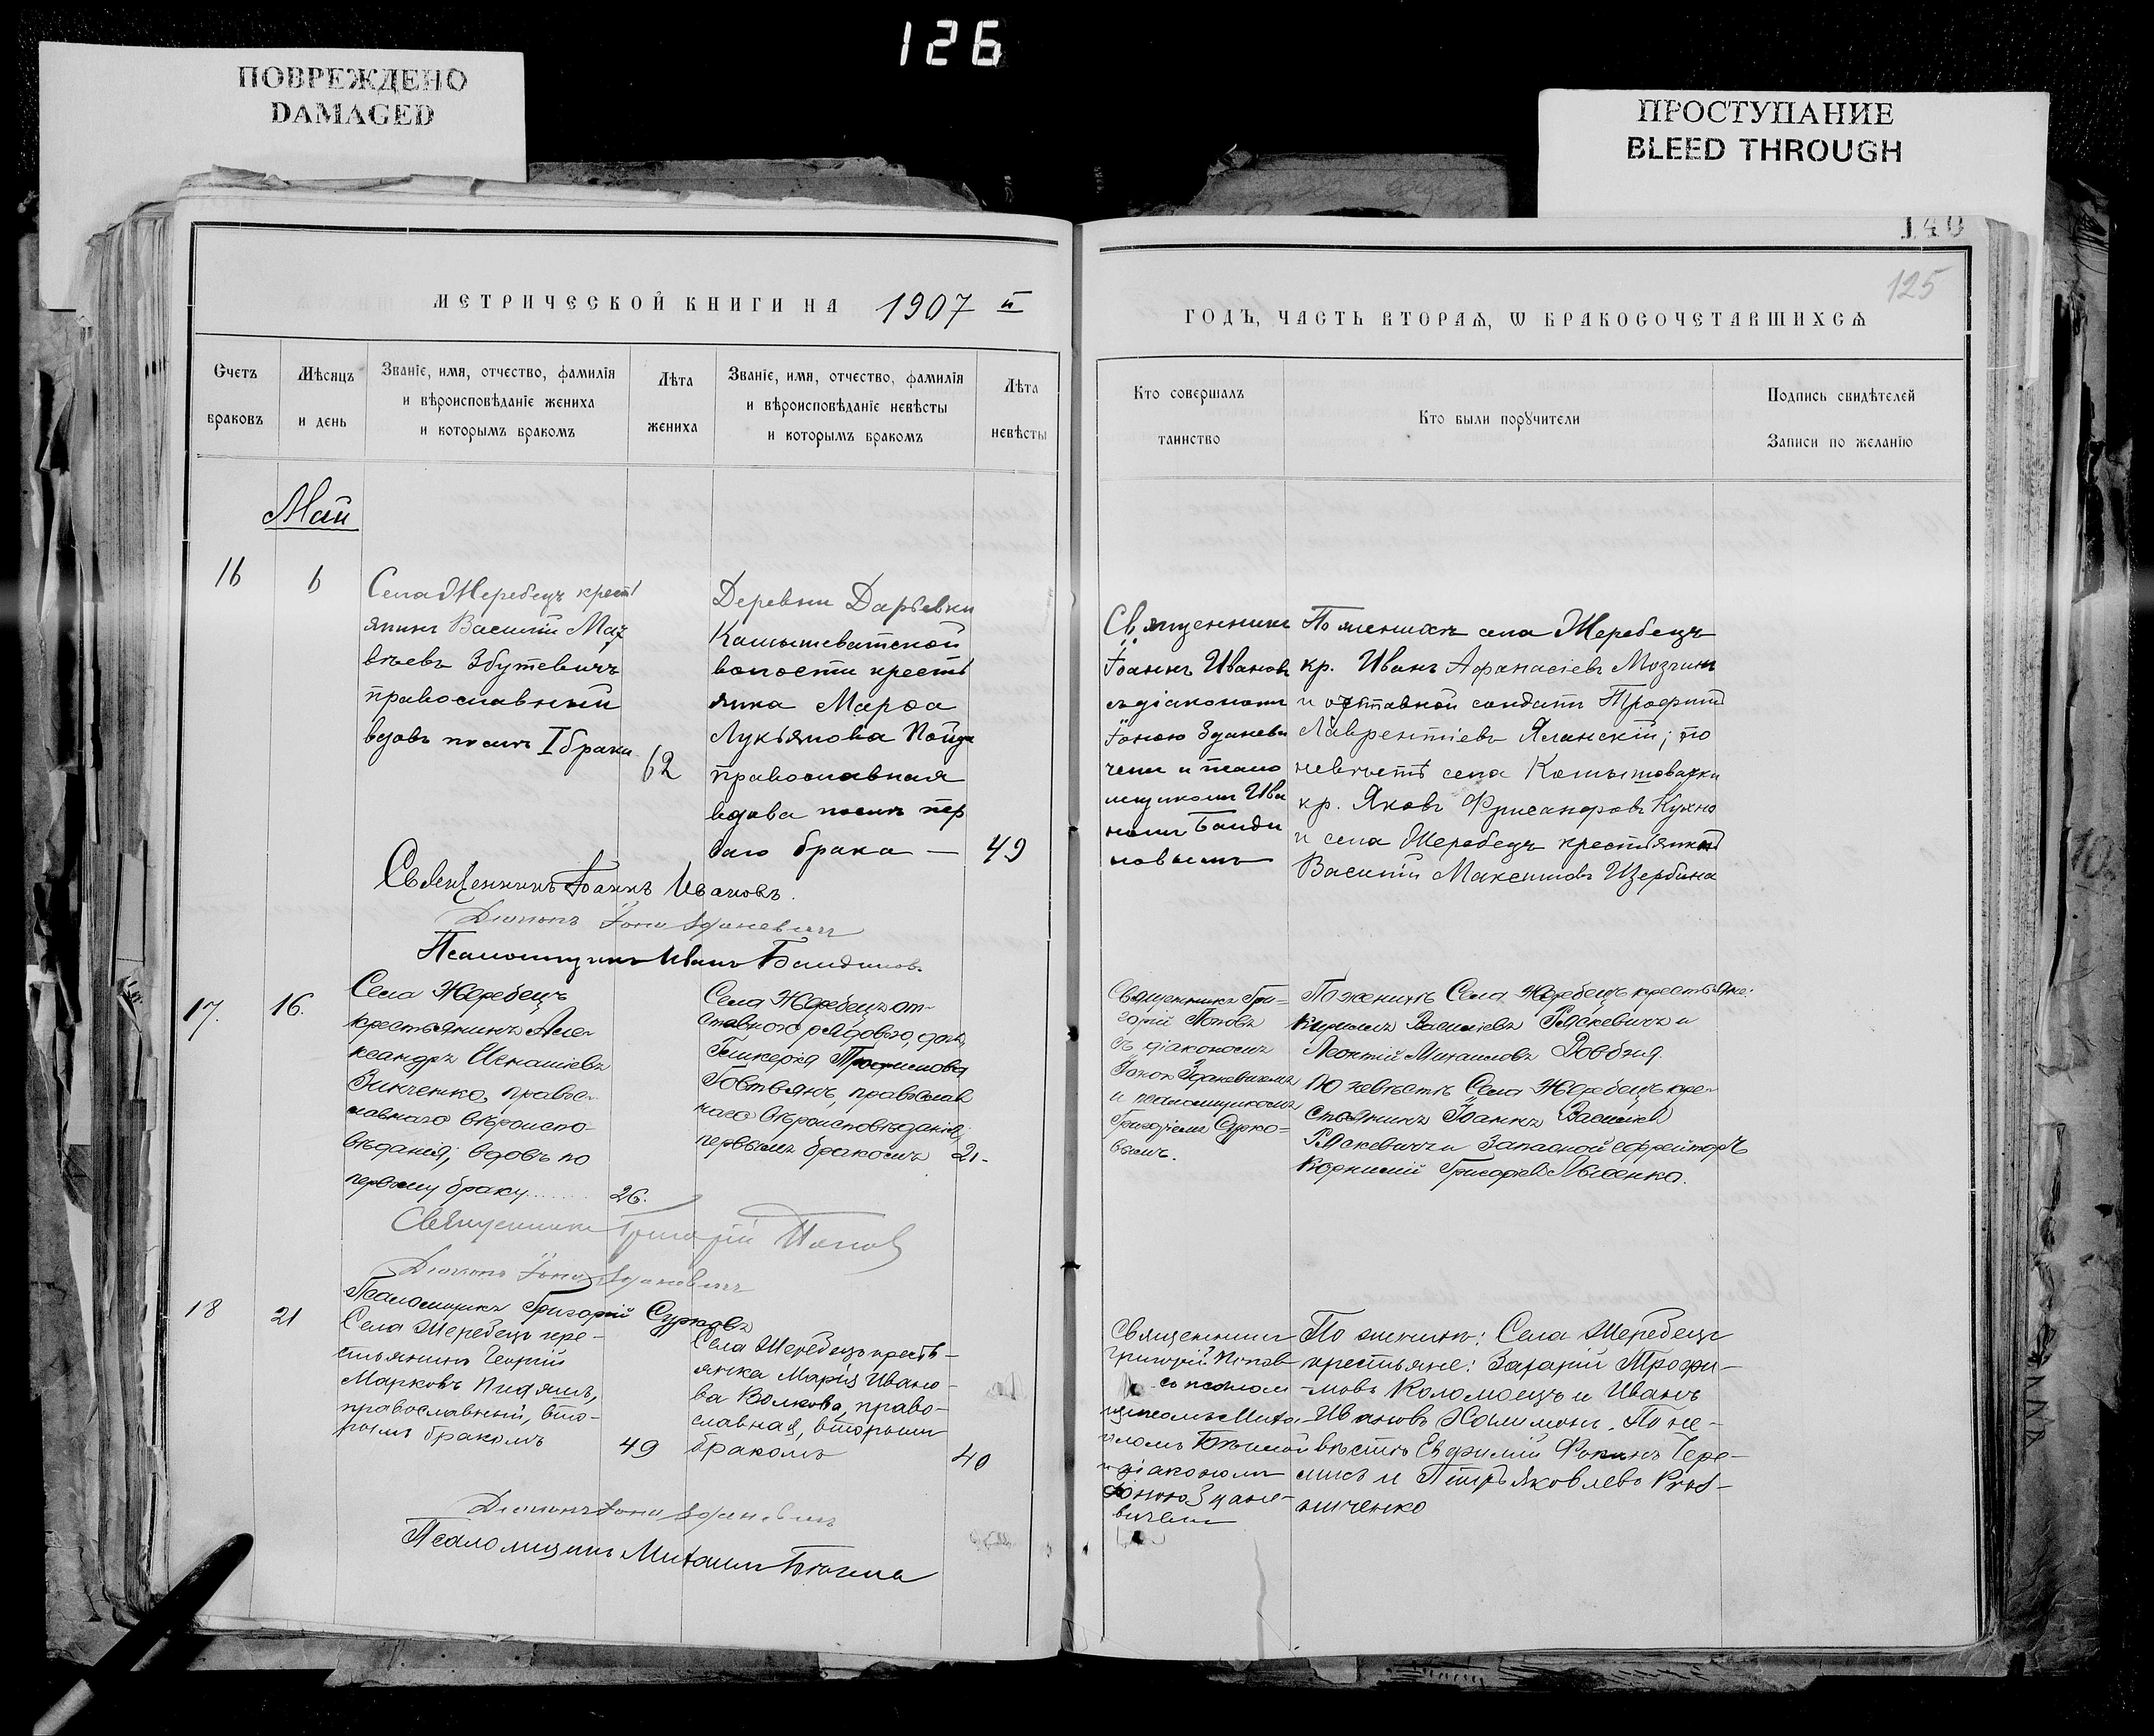 126
ПОВРЕЖДЕНО
DAMAGED
ПРОСТУПАНИЕ
BLEED THROUGH
140
125
МЕТРИЧЕСКОЙ КНИГИ НА 1907 й
Счетъ
браковъ
Мѣсяцъ
и день
Званіе, имя, отчество, фамилія
и вѣроисповѣданіе жениха
и которымъ бракомъ
Лѣта
жениха
Званіе, имя, отчество, фамилія
и вѣроисповѣданіе невѣсты
и которымъ бракомъ
Лѣта
невѣсты
ГОДЪ, ЧАСТЬ ВТОРАѦ, Ѡ БРАКОСОЧЕТАВШИХСѦ
Кто совершалъ
таинство
Кто были порꙋчители
Подпись свидѣтелей
Записи по желанію
Май
16
6
Села Жеребецъ крест
янинъ Василій Мат
вѣевъ Збутевичъ
православный
вдовъ послѣ I брака
62
Деревни Дарьевки
Камышеватской
волости кресть
янка Марѳа
Лукьянова
православная
вдова послѣ пер
ваго брака —
49
Священникъ
Іоаннъ Ивановъ
съ діакономъ
Іоною Зданеви
чемъ и псало
мщикомъ Ива
номъ Банди
новымъ
По женихѣ села Жеребецъ
кр. Иванъ Афанасіевъ
и отставной солдатъ Трофимъ
Лаврентіевъ; по
невѣстѣ села
кр. Яковъ
и села Жеребецъ крестьянинъ
Василій Максимовъ Щербина
Священникъ Іоаннъ Ивановъ.
Діаконъ Іона Зданевичъ
Псаломщикъ Иванъ Бандиновъ.
17.
16.
Села Жеребецъ
крестьянинъ Але-
ксандръ Игнатіевъ
Зинченко, правос-
лавнаго вѣроиспо-
вѣданія; вдовъ по
первому браку........
26.
Села Жеребецъ от-
ставного рядового, дочь
Гликерія
православ
наго вѣроисповѣданія,
первымъ бракомъ
21-
Священникъ Гри-
горій Поповъ
съ діакономъ
Іоною Зданевичемъ
и псаломщикомъ
Григоріемъ Сурко-
вымъ.
По женихѣ Села Жеребецъ крестьяне:
Кириллъ Василіевъ Раскевичъ и
Леонтій Михаиловъ Довбня.
По невѣстѣ Села Жеребецъ кре-
стьянинъ Іоаннъ Василіевъ
Раскевичъ и Запасной ефрейторъ
Корнилій Григоріевъ Лысенко.
Священникъ Григорій Поповъ
Діаконъ Іона Зданевичъ
Псаломщикъ Григорій Сурковъ
18
21
Села Жеребецъ кре-
стьянинъ Георгій
Марковъ Пидяшъ,
православный, вто-
рымъ бракомъ
49
Села Жеребецъ кресть-
янка Марія Ивано-
ва Волкова, право-
славная, вторымъ
бракомъ
40
Священникъ
Григорій Поповъ
съ псалом
щикомъ Миха
иломъ
и діакономъ
Іоною Здане-
вичемъ
По женихѣ: Села Жеребецъ
крестьяне: Захарій Трофи-
мовъ Коломоецъ и Иванъ
Ивановъ Халимонъ. По не-
вѣстѣ Евфимій Фокинъ Чере-
и Петръ Яковлевъ
Діаконъ Іона Зданевичъ
Псаломщикъ Михаилъ